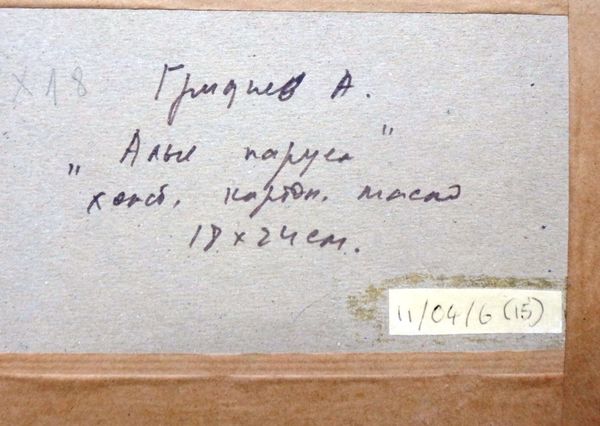 х18
А.
„Алые паруса"
холст, картон, масло
18 x 24 см.
11/04/6 (15)